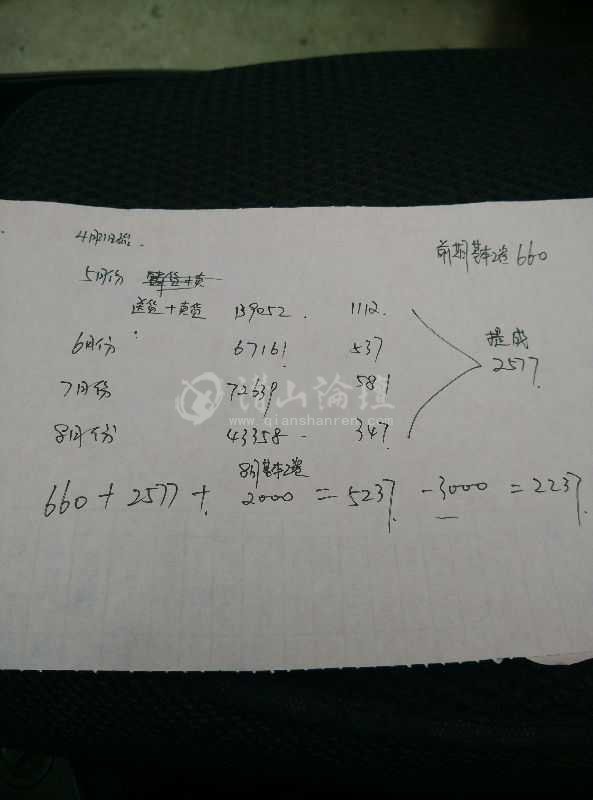 前期基本工资660
5月份
送货+卖货 139052. 1112.
6月份 67161 537
7月份 72639 581
8月份 43358 347
提成
2577
8月基本工资
660+2577+2000=5237-3000=2237
潜山论坛
www.qianshanren.com